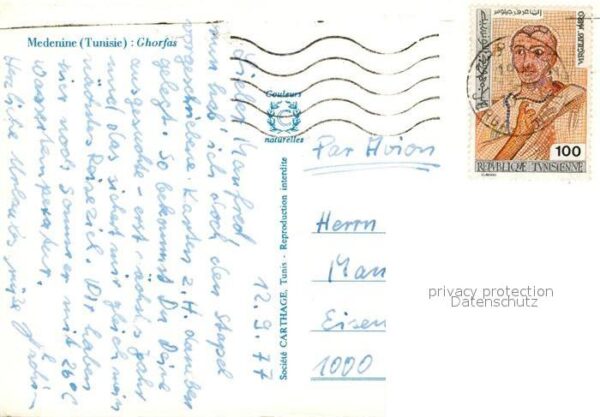 Medenine (Tunisie) : Ghorfas
12.9.77
Lieber Manfred
nun hab' ich doch den Stapel
vorgeschriebene Karten z.H. darüber
gelegt. So bekommst Du Deine
ausgesuchte - erst
und das sichert mir gleich mein
nächstes Reiseziel. Wir haben
hier noch Sommer mit 26°C
Wassertemperatur.
Herzliche Urlaubsgrüße
Couleurs
naturelles
Société CARTHAGE, Tunis - Reproduction interdite
Par Avion
Herrn
Man
Eisen
1000
VIRGILIUS MARO
100
REPUBLIQUE TUNISIENNE
privacy protection
Datenschutz